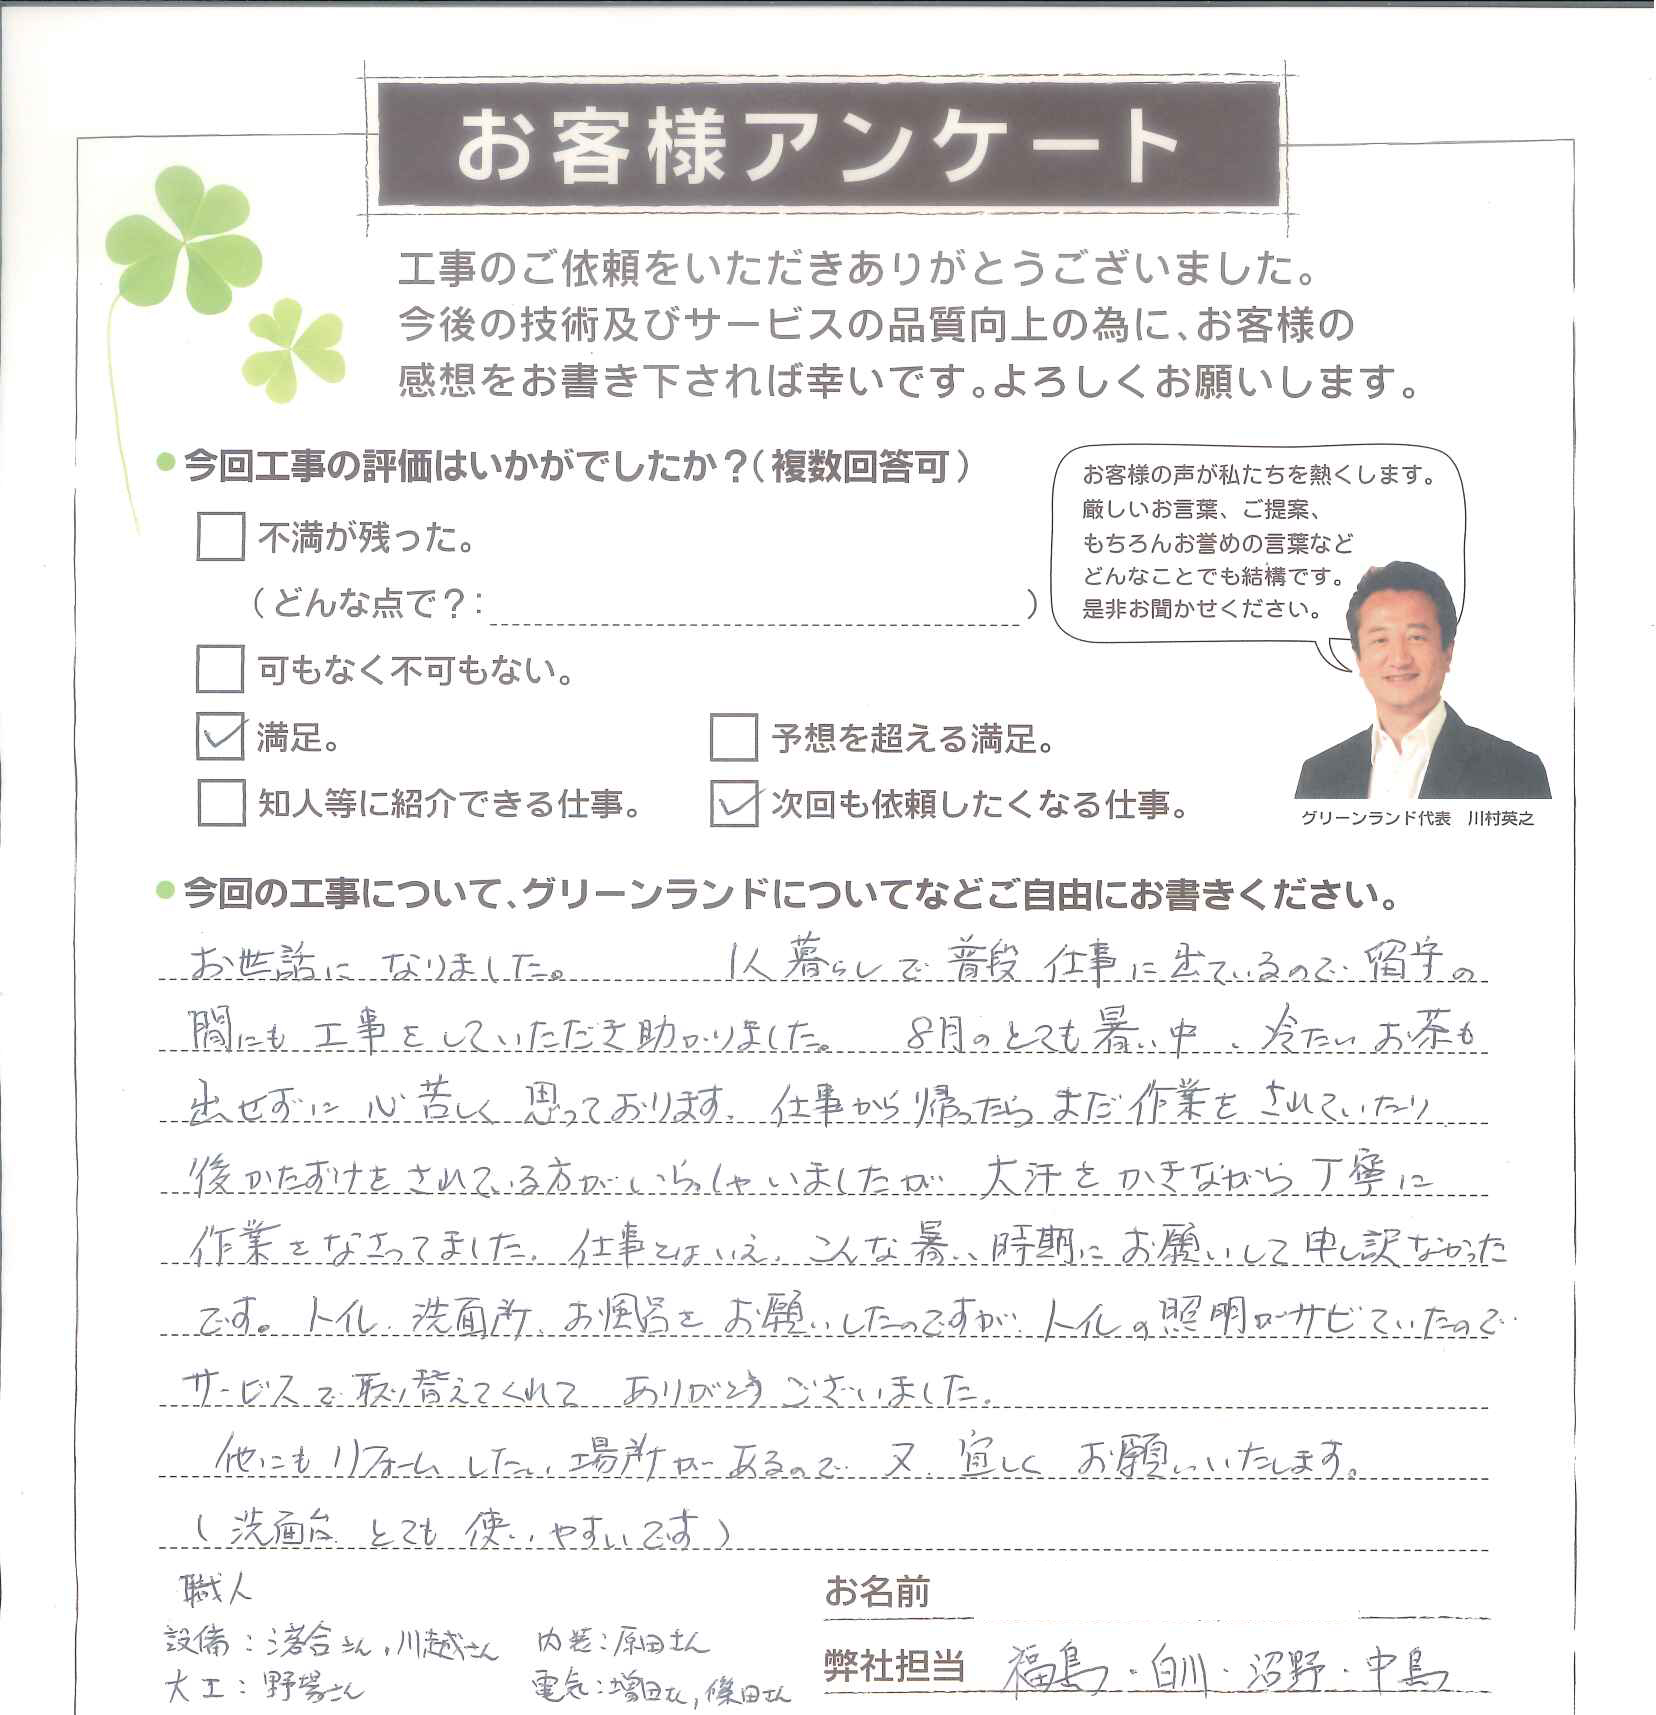 お客様アンケート
工事のご依頼をいただきありがとうございました。
今後の技術及びサービスの品質向上の為に、お客様の
感想をお書き下されば幸いです。よろしくお願いします。
今回工事の評価はいかがでしたか？（複数回答可）
不満が残った。
（どんな点で？： ）
可もなく不可もない。
満足。
予想を超える満足。
知人等に紹介できる仕事。
次回も依頼したくなる仕事。
お客様の声が私たちを熱くします。
厳しいお言葉、ご提案、
もちろんお誉めの言葉など
どんなことでも結構です。
是非お聞かせください。
グリーンランド代表 川村英之
今回の工事について、グリーンランドについてなどご自由にお書きください。
お世話になりました。 1人暮らしで普段仕事に出ているので留守の
間にも工事をしていただき助かりました。 8月のとても暑い中、冷たいお茶も
出せずに心苦しく思っております。仕事から帰ったらまだ作業をされていたり
後かたずけをされている方がいらっしゃいましたが大汗をかきながら丁寧に
作業をなさってました。仕事とはいえ、こんな暑い時期にお願いして申し訳なかった
です。トイレ、洗面所、お風呂をお願いしたのですが、トイレの照明がサビていたので
サービスで取り替えてくれてありがとうございました。
他にもリフォームしたい場所があるので又、宜しくお願いいたします。
（洗面台とても使いやすいです）
職人
設備：落合さん，川越さん 内装：原田さん
大工：野場さん 電気：増田さん，篠田さん
お名前
弊社担当 福島・白川・沼野・中島